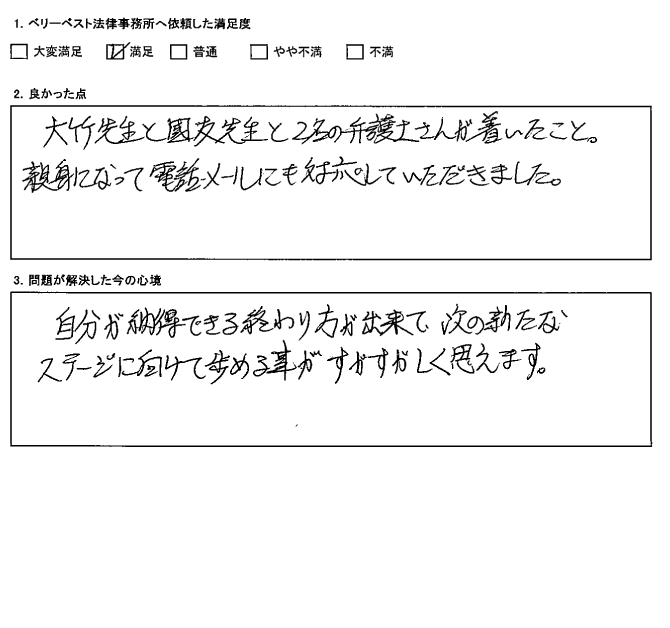 1. ベリーベスト法律事務所へ依頼した満足度
大変満足 満足 普通 やや不満 不満
2. 良かった点
大竹先生と國友先生と2名の弁護士さんが着いたこと。
親身になって電話・メールにも対応していただきました。
3. 問題が解決した今の心境
自分が納得できる終わり方が出来て、次の新たな
ステージに向けて歩める事がすがすがしく思えます。